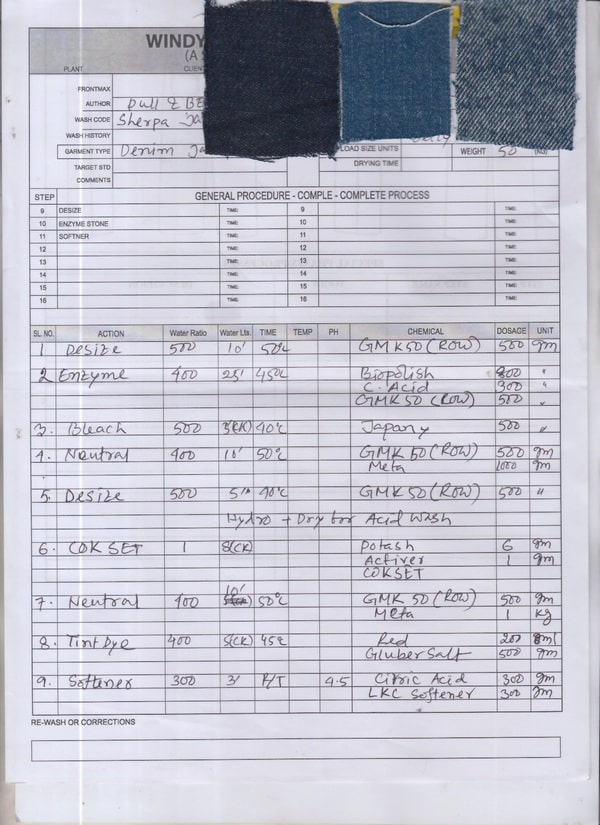 WINDY
(A S
PLANT CLIEN
FRONTMAX
AUTHOR Pull & BE
WASH CODE Sherpa Ja
WASH HISTORY
GARMENT TYPE Denim Ja
LOAD SIZE UNITS WEIGHT 50 (KG)
TARGET STD DRYING TIME
COMMENTS
STEP GENERAL PROCEDURE - COMPLE - COMPLETE PROCESS
9 DESIZE TIME: 9 TIME:
10 ENZYME STONE TIME: 10 TIME:
11 SOFTNER TIME: 11 TIME:
12 TIME: 12 TIME:
13 TIME: 13 TIME:
14 TIME: 14 TIME:
15 TIME: 15 TIME:
16 TIME: 16 TIME:
SL NO. ACTION Water Ratio Water Lts. TIME TEMP PH CHEMICAL DOSAGE UNIT
1 Desize 500 10' 50°c GMK50 (ROW) 500 gm
2 Enzyme 400 25' 45°c Biopolish 800 "
C. Acid 300 "
GMK 50 (ROW) 500 "
3. Bleach 500 (CK) 40°c Japany 500 "
4. Neutral 400 10' 50°c GMK 50 (ROW) 500 gm
Meta 1000 gm
5. Desize 500 5' 40°c GMK 50 (ROW) 500 "
Hydro + Dry for Acid Wash
6. COK SET 1 8(CK) Potash 6 gm
Activer 1 gm
COKSET
10'
7. Neutral 400 50°c GMK 50 (ROW) 500 gm
Meta 1 kg
8. Tint Dye 400 5(CK) 45°c Red 200 gm
Gluber Salt 500 gm
9. Softener 300 3' R/T 4.5 Citric Acid 300 gm
LKC Softener 300 gm
RE-WASH OR CORRECTIONS